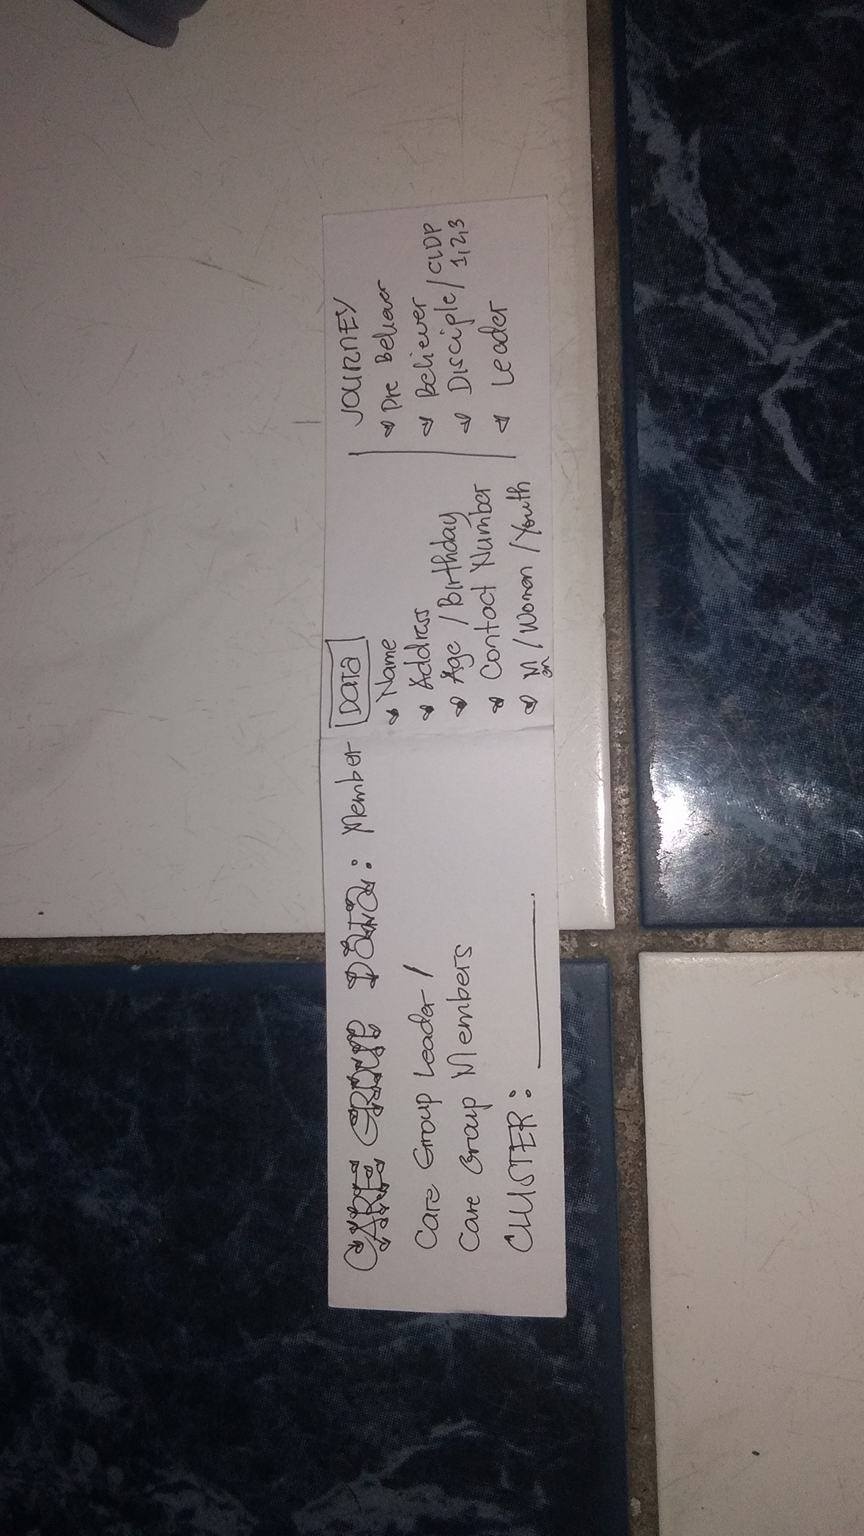 CARE GROUP DATA: Member
Care Group Leader /
Care Group Members
CLUSTER: ________.
DATA
Name
Address
Age / Birthday
Contact Number
Men / Women / Youth
JOURNEY
Pre Believer
Believer
Disciple / CLDP 1,2,3
Leader